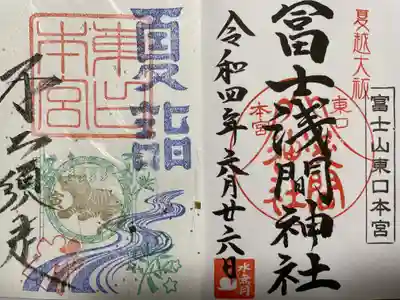 夏越大祓
富士山東口本宮
冨士浅間神社
東口
本宮
令和四年六月廿六日
水無月
夏詣
東口
本宮
不二須走